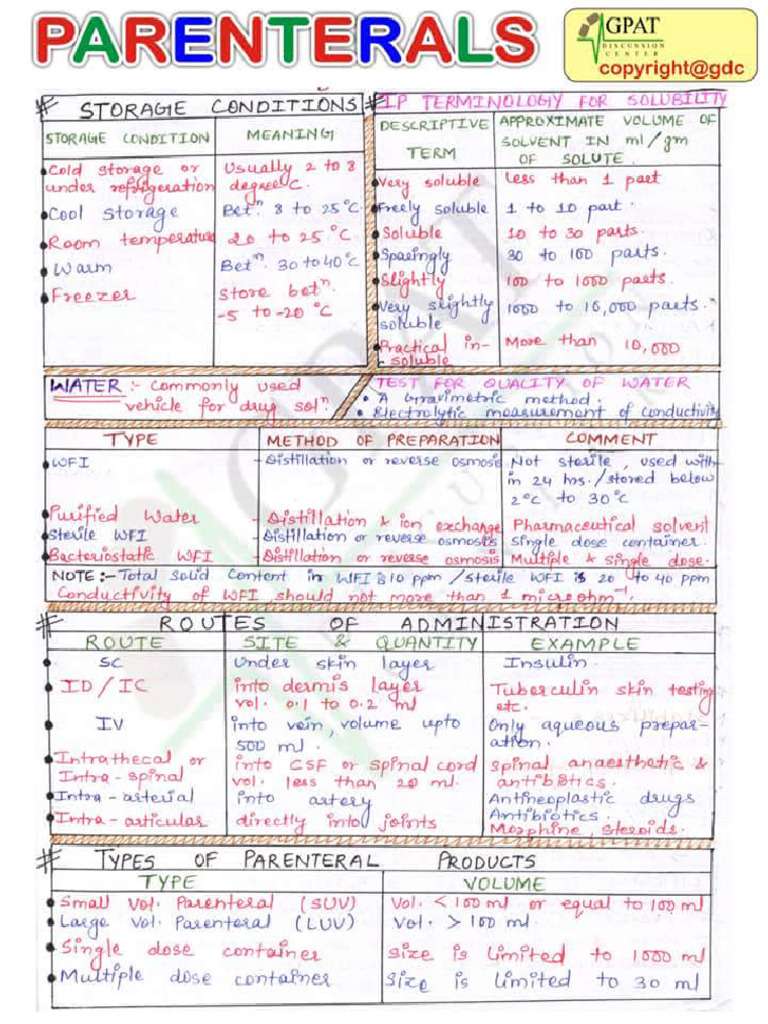 PARENTERALS
GPAT
DISCUSSION
CENTER
copyright@gdc
# STORAGE CONDITIONS
STORAGE CONDITION MEANING
Cold storage or Usually 2 to 8
under refrigeration degree C.
Cool storage Betⁿ 8 to 25°C.
Room temperature 20 to 25°C.
Warm Betⁿ. 30 to 40°C
Freezer Store betⁿ.
-5 to -20°C
# IP TERMINOLOGY FOR SOLUBILITY
DESCRIPTIVE APPROXIMATE VOLUME OF
TERM SOLVENT IN ml/gm
OF SOLUTE.
Very soluble Less than 1 part
Freely soluble 1 to 10 part.
Soluble 10 to 30 parts.
Sparingly 30 to 100 parts.
Slightly 100 to 1000 parts.
Very slightly 1000 to 10,000 parts.
soluble
Practical in- More than 10,000
-soluble
WATER :- Commonly used
vehicle for drug solⁿ.
TEST FOR QUALITY OF WATER
• A Gravimetric method.
• Electrolytic measurement of conductivity
TYPE METHOD OF PREPARATION COMMENT
WFI -Distillation or reverse osmosis Not sterile, used with-
in 24 hrs./stored below
2°C to 30°C
Purified Water - Distillation & ion exchange Pharmaceutical solvent
Sterile WFI -Distillation or reverse osmosis Single dose container.
Bacteriostatic WFI -Distillation or reverse osmosis Multiple & single dose.
NOTE :- Total Solid Content in WFI is 10 ppm / sterile WFI is 20 to 40 ppm
Conductivity of WFI, should not more than 1 micro ohm⁻¹.
# ROUTES OF ADMINISTRATION
ROUTE SITE & QUANTITY EXAMPLE
SC Under skin layer Insulin.
ID / IC into dermis layer Tuberculin skin testing
vol. 0.1 to 0.2 ml etc.
IV into vein, volume upto Only aqueous prepar-
500 ml. ation.
Intrathecal or into CSF or spinal cord Spinal anaesthetic &
Intra-spinal vol. less than 20 ml. antibiotics.
Intra-arterial into artery Antineoplastic drugs
Antibiotics.
Intra-articular directly into joints Morphine, steroids.
# TYPES OF PARENTERAL PRODUCTS
TYPE VOLUME
Small Vol. Parenteral (SUV) Vol. < 100 ml or equal to 100 ml
Large Vol. Parenteral (LUV) Vol. > 100 ml.
Single dose container Size is limited to 1000 ml
Multiple dose container Size is limited to 30 ml